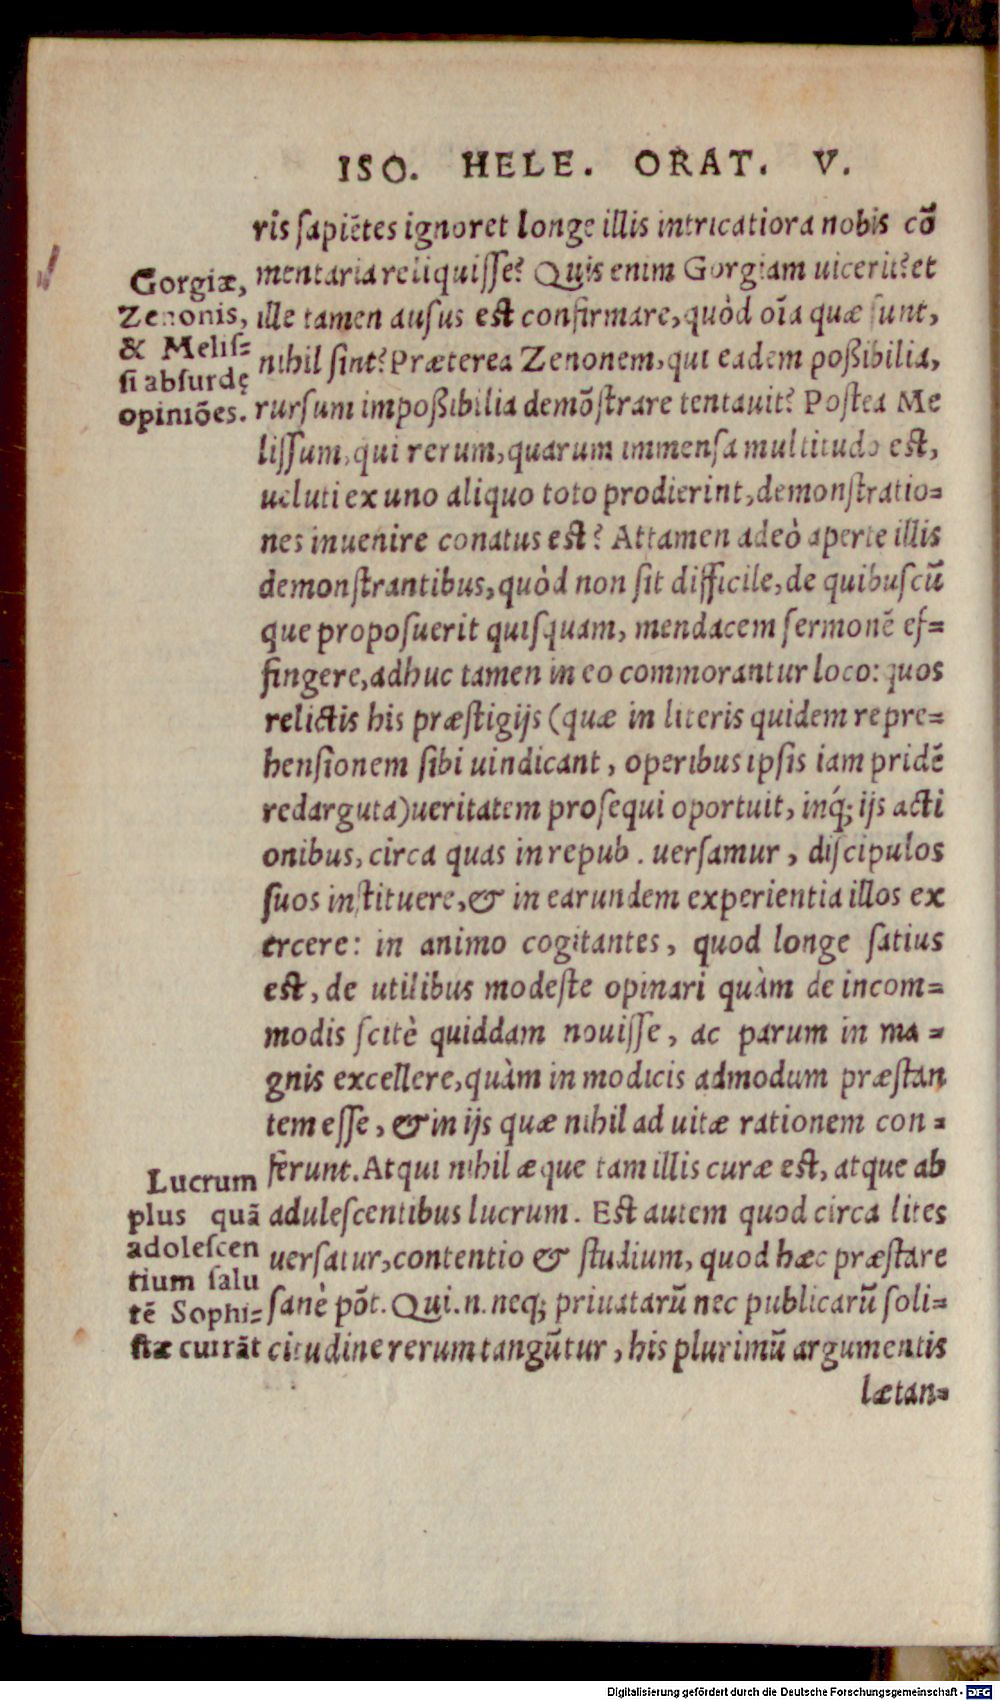 ISO. HELE. ORAT. V.
ris sapiētes ignoret longe illis intricatiora nobis cō
mentaria reliquisse? Quis enim Gorgiam uicerit? et
ille tamen ausus est confirmare, quòd oīa quæ sunt,
nihil sint? Præterea Zenonem, qui eadem poßibilia,
rursum impoßibilia demōstrare tentauit? Postea Me
lissum, qui rerum, quarum immensa multitudo est,
ueluti ex uno aliquo toto prodierint, demonstratio=
nes inuenire conatus est? Attamen adeò aperte illis
demonstrantibus, quòd non sit difficile, de quibuscū
que proposuerit quisquam, mendacem sermonē ef=
fingere, adhuc tamen in eo commorantur loco: quos
relictis his præstigijs (quæ in literis quidem repre=
hensionem sibi uindicant, operibus ipsis iam pridē
redarguta) ueritatem prosequi oportuit, inq́; ijs acti
onibus, circa quas in repub. uersamur, discipulos
suos instituere, & in earundem experientia illos ex
ercere: in animo cogitantes, quod longe satius
est, de utilibus modeste opinari quàm de incom=
modis scitè quiddam nouisse, ac parum in ma=
gnis excellere, quàm in modicis admodum præstan
tem esse, & in ijs quæ nihil ad uitæ rationem con=
ferunt. Atqui nihil æque tam illis curæ est, atque ab
adulescentibus lucrum. Est autem quod circa lites
uersatur, contentio & studium, quod hæc præstare
sanè pōt. Qui. n. neq; priuatarū nec publicarū soli=
citudine rerum tangūtur, his plurimū argumentis
lætan=
Gorgiæ,
Zenonis,
& Melis=
si absurdę
opiniões.
Lucrum
plus quā
adolescen
tium salu
tē Sophi=
stæ curāt
Digitalisierung gefördert durch die Deutsche Forschungsgemeinschaft - DFG